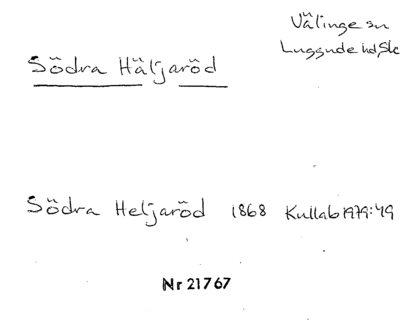 Välinge sn
Luggude hd, Sk
Södra Häljaröd
Södra Heljaröd 1868 Kullab 1979:49
Nr 21767